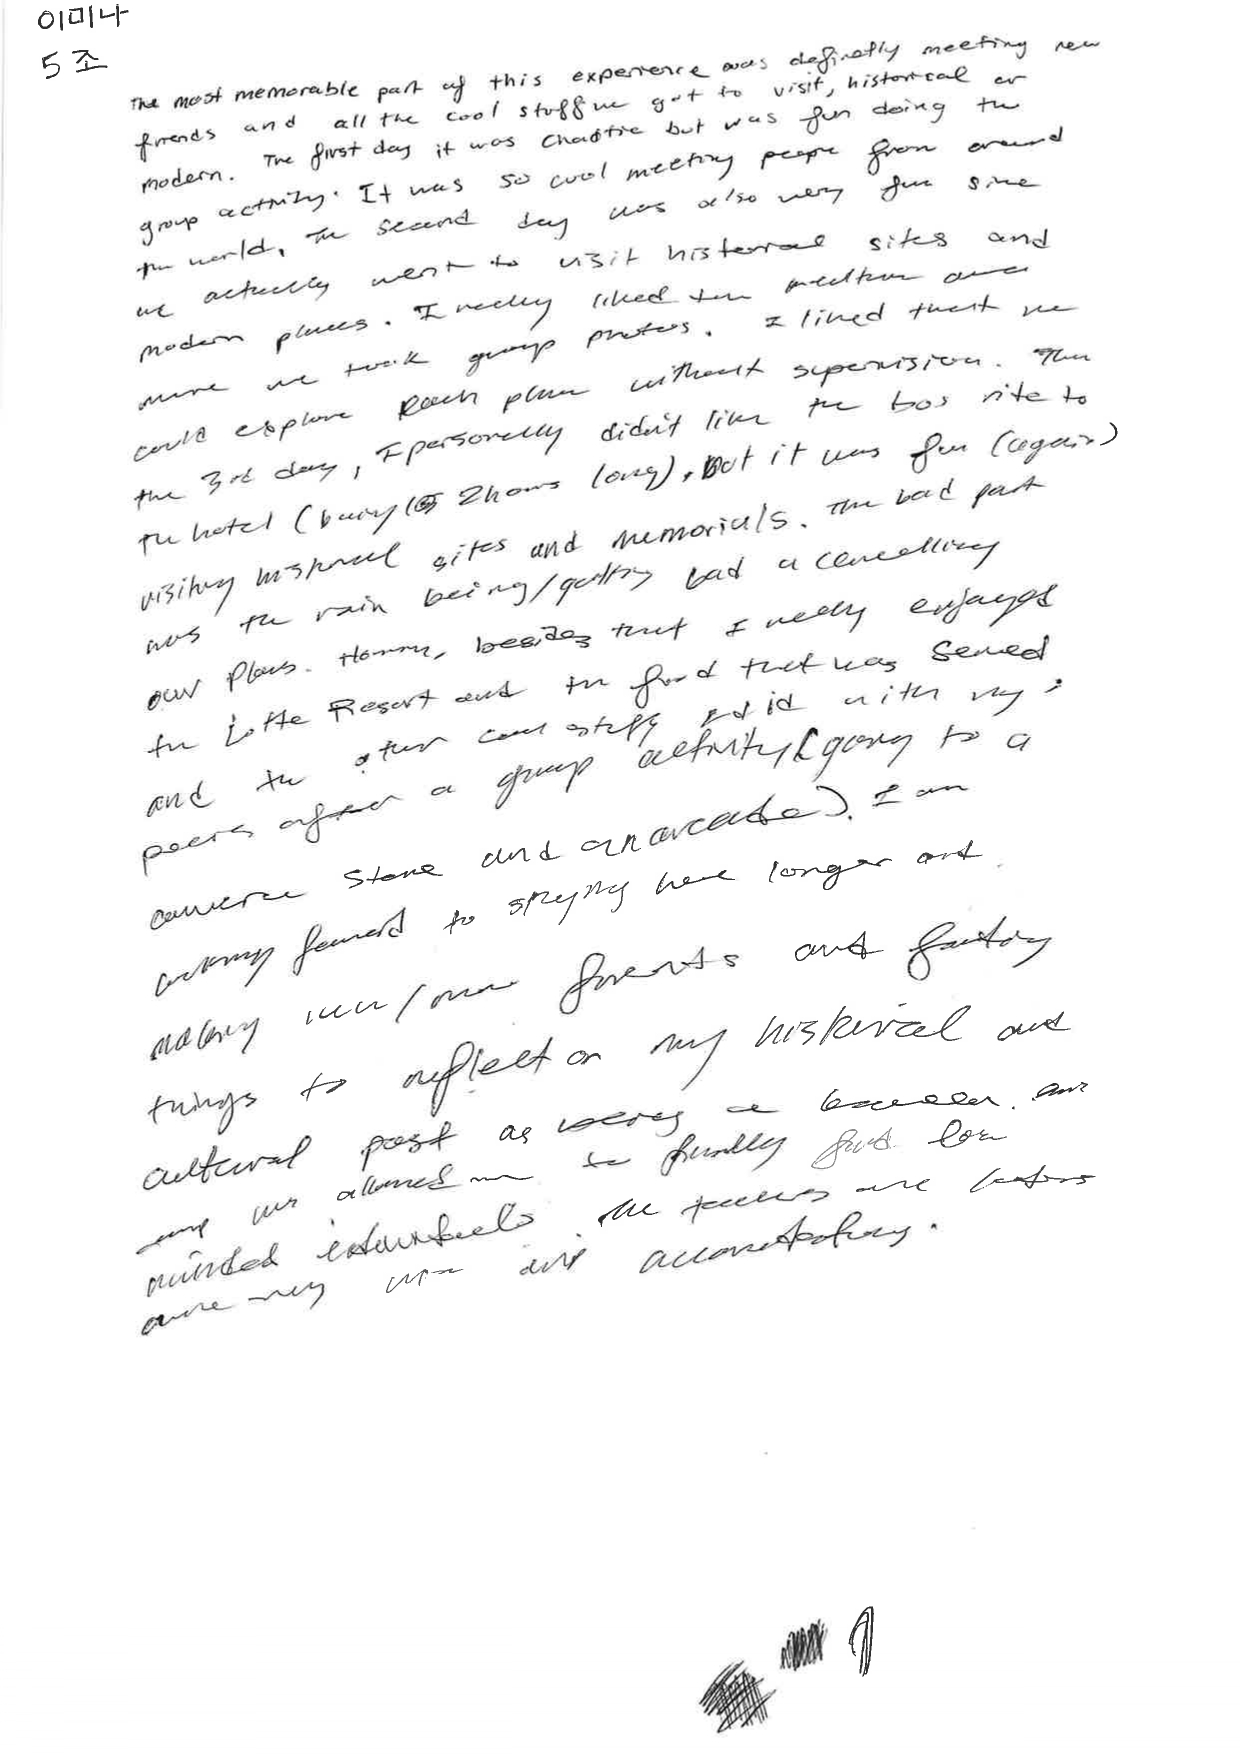 이미나
5조
The most memorable part of this experience was definetly meeting new
friends and all the cool stuff we got to visit, historical or
modern. The first day it was chaotic but was fun doing the
group activity. It was so cool meeting people from around
the world, The second day was also very fun sine
we actually went to visit historical sites and
modern places. I really liked the
we took group photos. I liked that we
could explore each place without supervision. The
the 3rd day, I personally didn't like the bos rite to
the hotel (being 2 hours long), But it was fun (again)
visiting historical sites and memorials. The bad part
was the rain being/getting bad a cancelling
our plans. However, besides that I really enjoyed
the Lotte Resort and the food that was served
and the other cool stuff I did with my
peers after a group activity (going to a
store and an arcade). I am
forward to staying here longer and
making new/more friends and
things to reflect on my historical and
cultural past as
allowed me to finally find
minded The teachers are
very